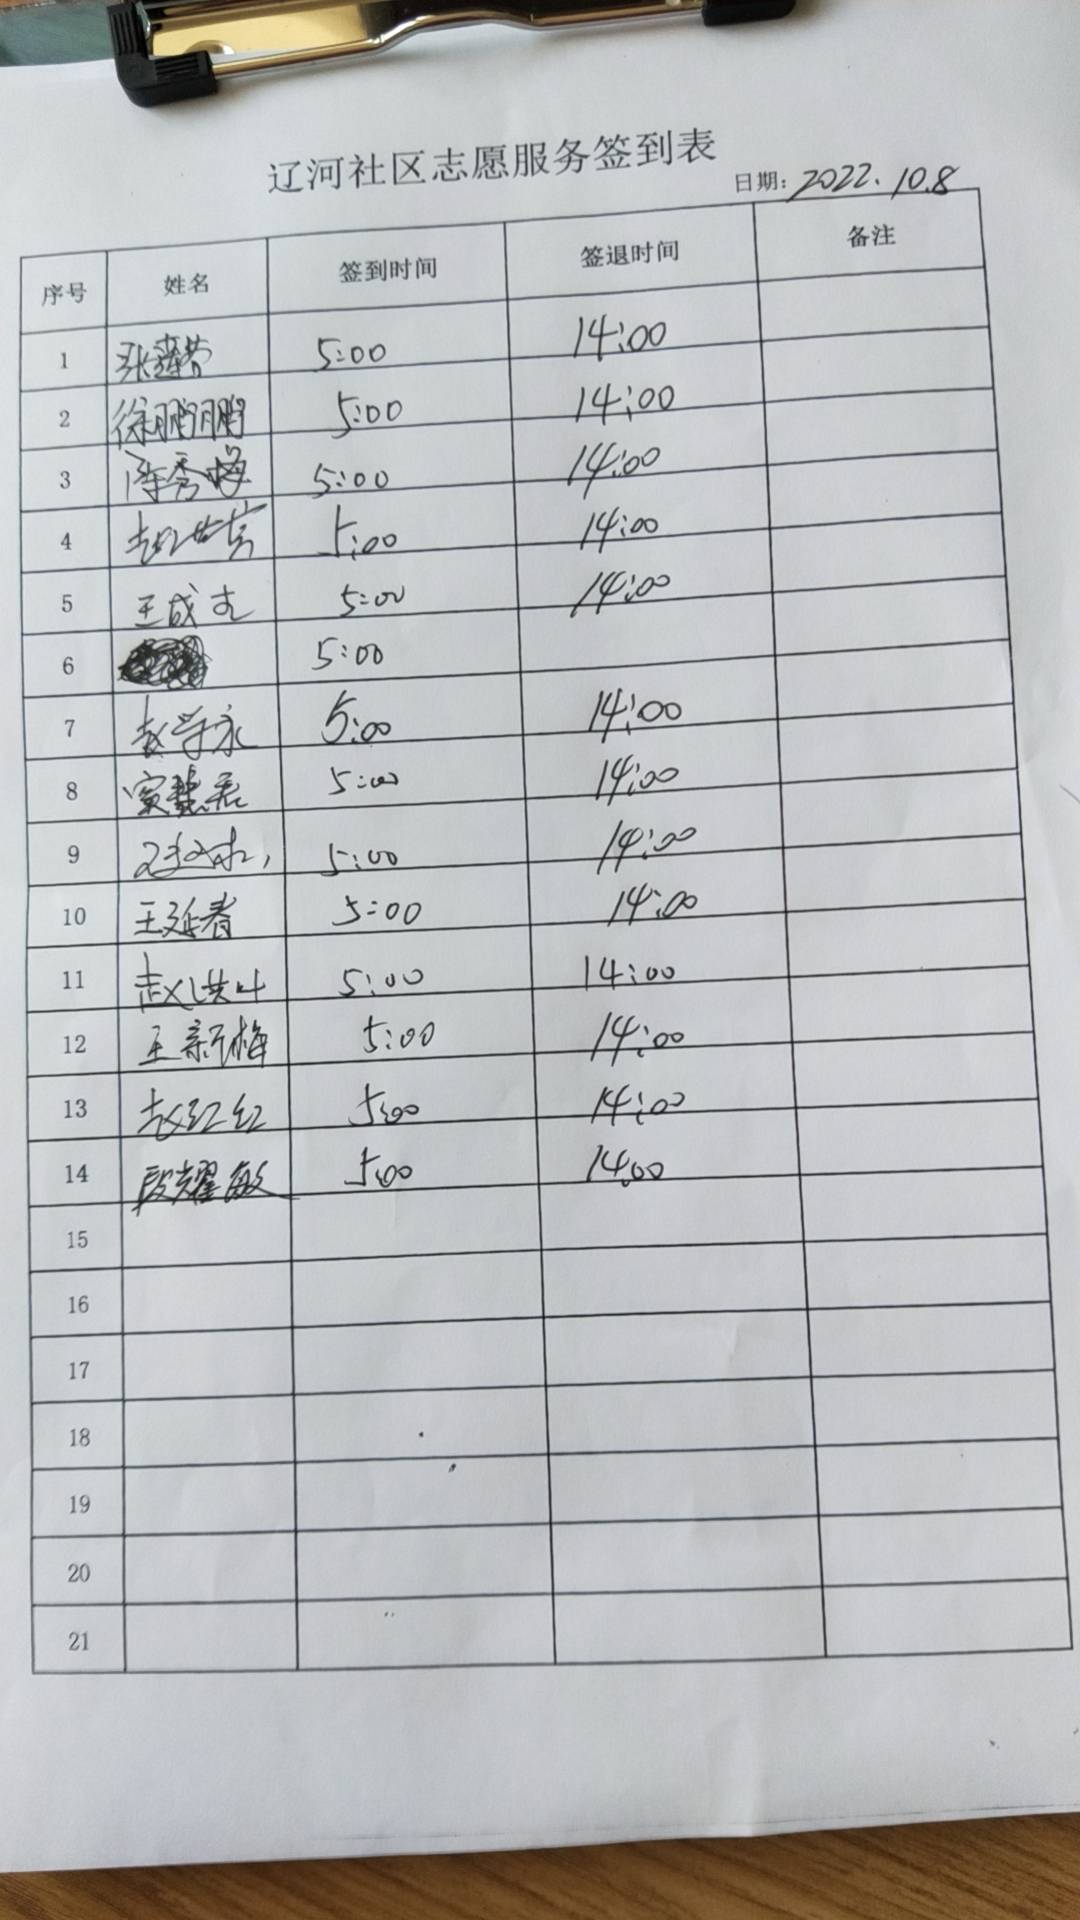 辽河社区志愿服务签到表
日期: 2022.10.8
序号 姓名 签到时间 签退时间 备注
1 5:00 14:00
2 徐鹏鹏 5:00 14:00
3 陈秀梅 5:00 14:00
4 5:00 14:00
5 王成 5:00 14:00
6 5:00
7 赵学永 5:00 14:00
8 窦慧君 5:00 14:00
9 5:00 14:00
10 王延春 5:00 14:00
11 赵洪叶 5:00 14:00
12 王新梅 5:00 14:00
13 赵红红 5:00 14:00
14 段耀敏 5:00 14:00
15
16
17
18
19
20
21